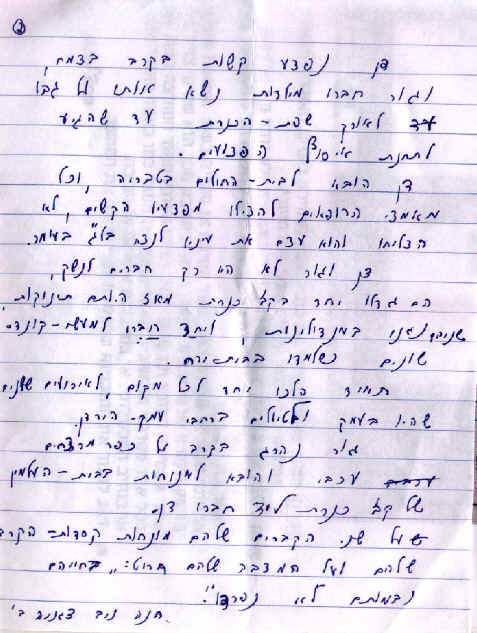 3
דן נפצע קשות בקרב בצמח,
וגור חברו מילדות נשא אותו על גבו
לאורך שפת-הכנרת עד שהגיע
לתחנת איסוף הפצועים.
דן הובא לבית-החולים בטבריה, וכל
מאמצי הרופאים להצילו מפצעיו הקשים, לא
הצליחו והוא עצם את עיניו לנצח בל"ג בעומר.
דן וגור לא היו רק חברים לנשק,
הם גדלו יחד בקב' כנרת מאז היותם תינוקות,
שניהם נגנו במנדולינות, ויחד חוברו למעשי-קונדס
שונים כשלמדו בבית-ירח.
תמיד הלכו יחד לכל מקום, לאירועים שונים
שהיו בעמק ולטיולים ברחבי עמק-הירדן.
גור נהרג בקרב על כפר מרצחים
ערבי. והובא למנוחות בבית-העלמין
של קב' כנרת ליד חברו דן.
על שני הקברים שלהם מונחות קסדות-הקרב
שלהם ועל המצבה שלהם חרוט: "בחייהם
ובמותם לא נפרדו".
חנה ניב דגניה ב'.